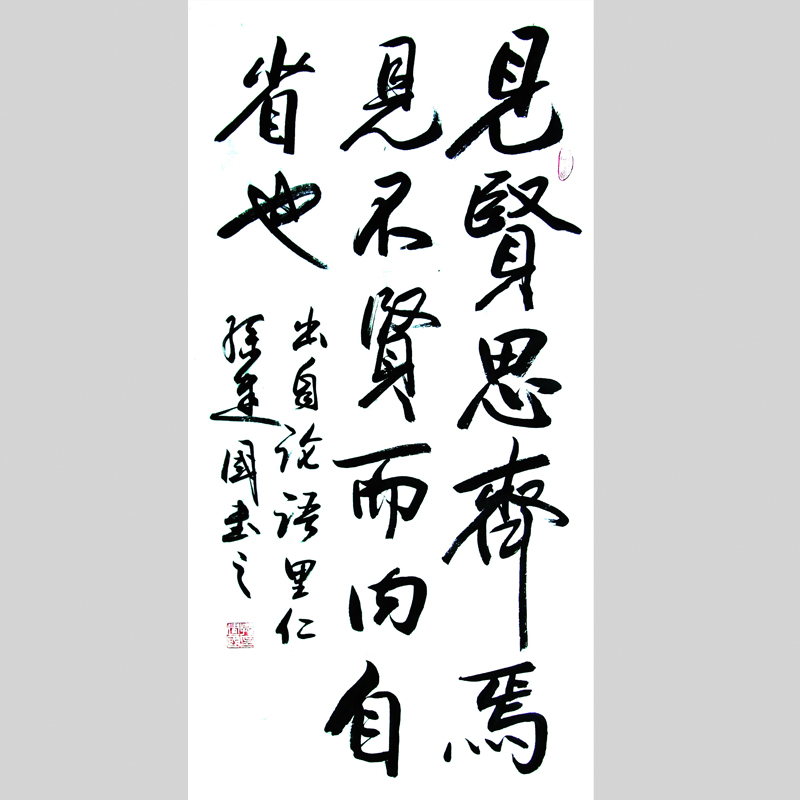 見賢思齊焉
見不賢而内自
省也
出自论语里仁
孫建國书之